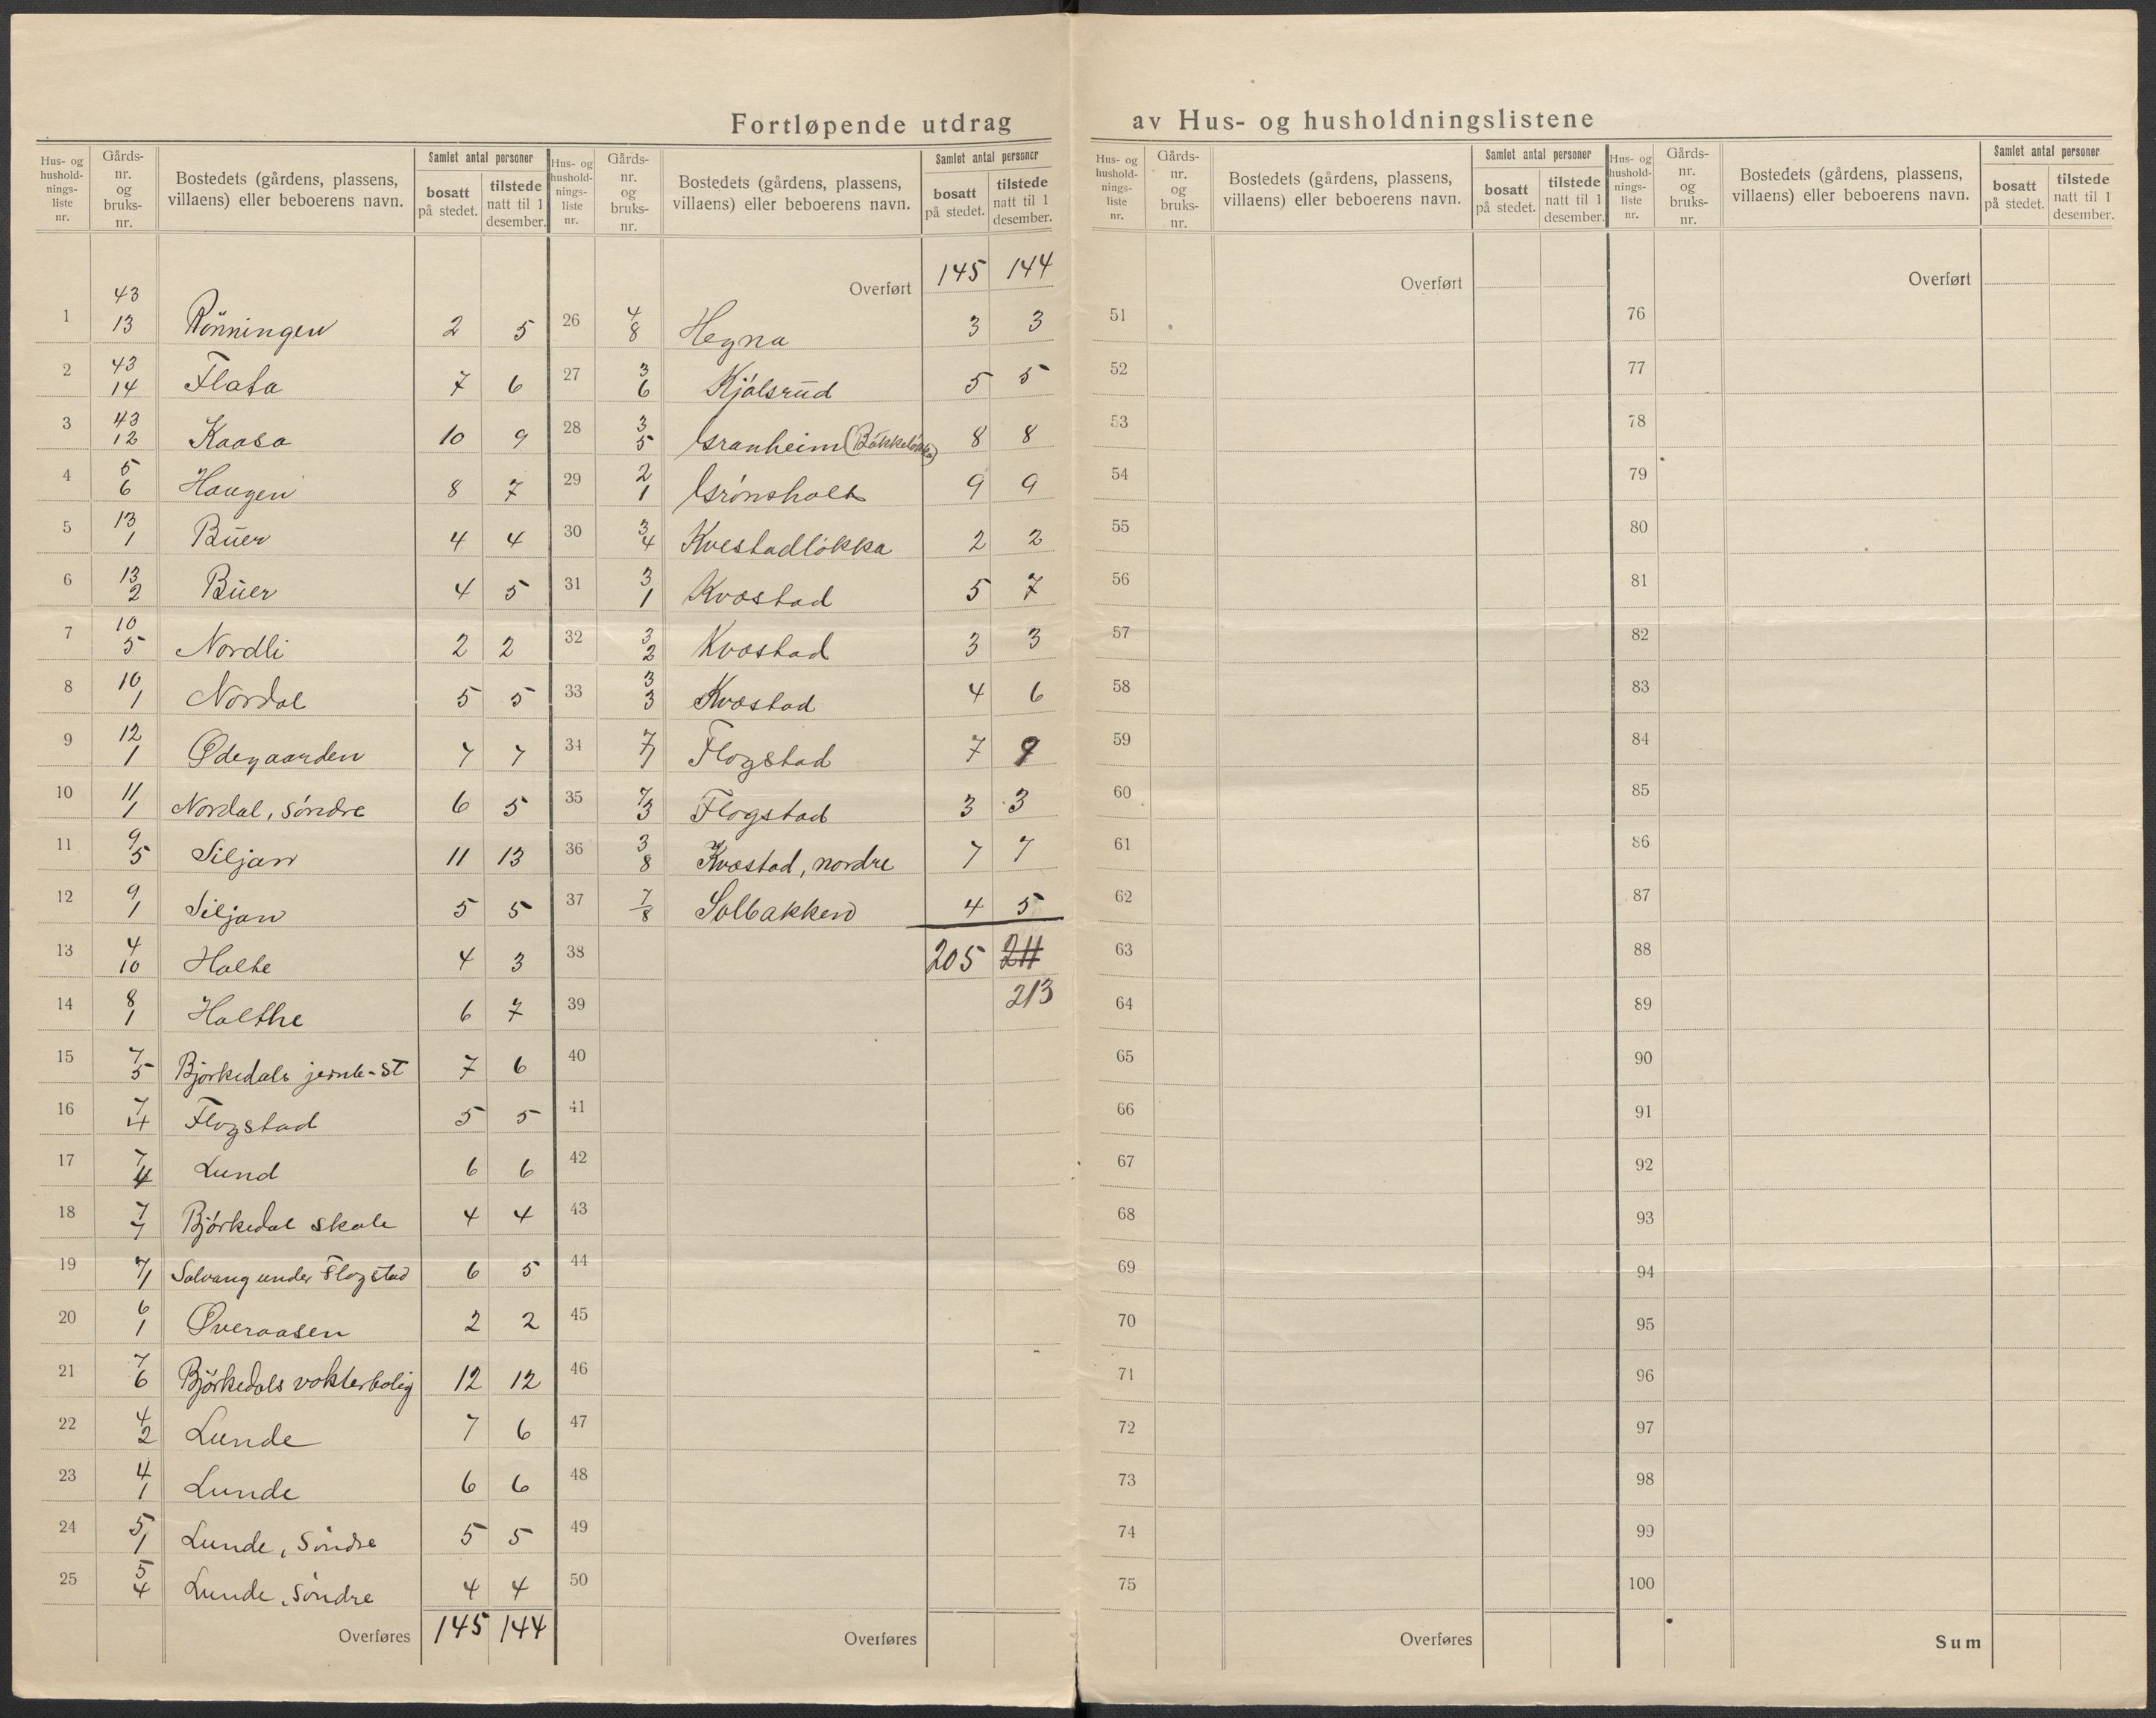 Fortløpende utdrag av Hus- og husholdningslistene
Hus- og hushold-nings-liste nr. Gårds-nr. og bruks-nr. Bostedets (gårdens, plassens, villaens) eller beboerens navn. Samlet antal personer bosatt på stedet. tilstede natt til 1 desember.
1 43 13 Rönningen 2 5
2 43 14 Flata 7 6
3 43 12 Kaasa 10 9
4 5 6 Haugen 8 7
5 13 1 Buer 4 4
6 13 2 Buer 4 5
7 10 5 Nordli 2 2
8 10 1 Nordal 5 5
9 12 1 Ødegaarden 7 7
10 11 1 Nordal, söndre 6 5
11 9 5 Siljan 11 13
12 9 1 Siljan 5 5
13 4 10 Holte 4 3
14 8 1 Holthe 6 7
15 7 5 Bjørkedals jernb-st 7 6
16 7 4 Flogstad 5 5
17 7 4 Lund 6 6
18 7 7 Bjørkedal skole 4 4
19 7 1 Solvang under Flogstad 6 5
20 6 1 Øveraasen 2 2
21 7 6 Björkedals vokterbolig 12 12
22 4 2 Lunde 7 6
23 4 1 Lunde 6 6
24 5 1 Lunde, Söndre 5 5
25 5 4 Lunde, söndre 4 4
Overføres 145 144
Hus- og hushold-nings-liste nr. Gårds-nr. og bruks-nr. Bostedets (gårdens, plassens, villaens) eller beboerens navn. Samlet antal personer bosatt på stedet. tilstede natt til 1 desember.
Overført 145 144
26 4 8 Hegna 3 3
27 3 6 Kjölsrud 5 5
28 3 5 Granheim (Bökkelökka) 8 8
29 2 1 Grönsholt 9 9
30 3 4 Kvestadlökka 2 2
31 3 1 Kvæstad 5 7
32 3 2 Kvæstad 3 3
33 3 3 Kvæstad 4 6
34 7 1 Flogstad 7 9
35 7 3 Flogstad 3 3
36 3 8 Kvæstad, nordre 7 7
37 7 8 Solbakken 4 5
38 205 211
39 213
40
41
42
43
44
45
46
47
48
49
50
Overføres
Hus- og hushold-nings-liste nr. Gårds-nr. og bruks-nr. Bostedets (gårdens, plassens, villaens) eller beboerens navn. Samlet antal personer bosatt på stedet. tilstede natt til 1 desember.
Overført
51
52
53
54
55
56
57
58
59
60
61
62
63
64
65
66
67
68
69
70
71
72
73
74
75
Overføres
Hus- og hushold-nings-liste nr. Gårds-nr. og bruks-nr. Bostedets (gårdens, plassens, villaens) eller beboerens navn. Samlet antal personer bosatt på stedet. tilstede natt til 1 desember.
Overført
76
77
78
79
80
81
82
83
84
85
86
87
88
89
90
91
92
93
94
95
96
97
98
99
100
Sum